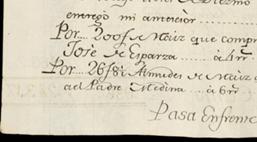 entregó mi antecesor
Por.... 200 f. de Maiz que compr
Jose de Esparza ..... à 4rr
Por.. 26 f. 8 Almudes de Maiz
al Padre Medina ... à 6rr
Pasa Enfrente